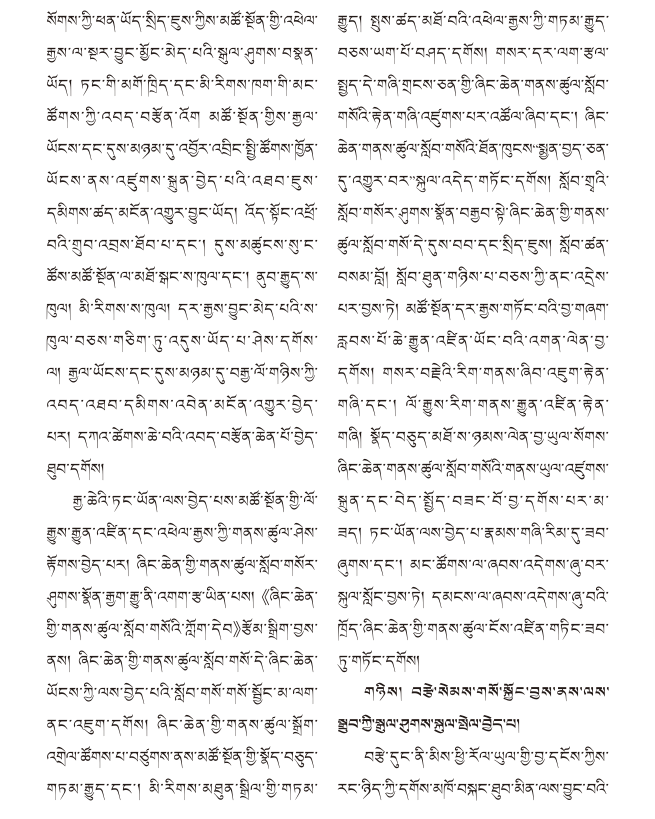 སོགས་ཀྱི་ཕན་ཡོད་སྲིད་ཇུས་ཀྱིས་མཚོ་སྔོན་གྱི་འཕེལ་
རྒྱས་ལ་སྔར་བྱུང་མྱོང་མེད་པའི་སྐུལ་ཤུགས་བསྣན་
ཡོད། ཏང་གི་མགོ་ཁྲིད་དང་མི་རིགས་ཁག་གི་མང་
ཚོགས་ཀྱི་འབད་བརྩོན་འོག མཚོ་སྔོན་གྱིས་རྒྱལ་
ཡོངས་དང་དུས་མཉམ་དུ་འབྱོར་འབྲིང་སྤྱི་ཚོགས་ཁྱོན་
ཡོངས་ནས་འཛུགས་སྐྲུན་བྱེད་པའི་འཐབ་ཇུས་
དམིགས་ཚད་མངོན་འགྱུར་བྱུང་ཡོད། འོད་སྟོང་འཕྲོ་
བའི་གྲུབ་འབྲས་ཐོབ་པ་དང་། དུས་མཚུངས་སུ་ང་
ཚོས་མཚོ་སྔོན་ལ་མཐོ་སྒང་ས་ཁུལ་དང་། ནུབ་རྒྱུད་ས་
ཁུལ། མི་རིགས་ས་ཁུལ། དར་རྒྱས་བྱུང་མེད་པའི་ས་
ཁུལ་བཅས་གཅིག་ཏུ་འདུས་ཡོད་པ་ཤེས་དགོས་
ལ། རྒྱལ་ཡོངས་དང་དུས་མཉམ་དུ་བརྒྱ་ལོ་གཉིས་ཀྱི་
འབད་འཐབ་དམིགས་འབེན་མངོན་འགྱུར་བྱེད་
པར། དཀའ་ཚེགས་ཆེ་བའི་འབད་བརྩོན་ཆེན་པོ་བྱེད་
ཐུབ་དགོས།
རྒྱ་ཆེའི་ཏང་ཡོན་ལས་བྱེད་པས་མཚོ་སྔོན་གྱི་ལོ་
རྒྱུས་རྒྱུན་འཛིན་དང་འཕེལ་རྒྱས་ཀྱི་གནས་ཚུལ་ཤེས་
རྟོགས་བྱེད་པར། ཞིང་ཆེན་གྱི་གནས་ཚུལ་སློབ་གསོར་
ཤུགས་སྣོན་རྒྱག་རྒྱུ་ནི་འགག་རྩ་ཡིན་པས། 《ཞིང་ཆེན་
གྱི་གནས་ཚུལ་སློབ་གསོའི་ཀློག་དེབ》རྩོམ་སྒྲིག་བྱས་
ནས། ཞིང་ཆེན་གྱི་གནས་ཚུལ་སློབ་གསོ་དེ་ཞིང་ཆེན་
ཡོངས་ཀྱི་ལས་བྱེད་པའི་སློབ་གསོ་གསོ་སྦྱོང་མ་ལག་
ནང་འཇུག་དགོས། ཞིང་ཆེན་གྱི་གནས་ཚུལ་སྒྲོག་
འགྲེལ་ཚོགས་པ་བཙུགས་ནས་མཚོ་སྔོན་གྱི་སྣོད་བཅུད་
གཏམ་རྒྱུད་དང་། མི་རིགས་མཐུན་སྒྲིལ་གྱི་གཏམ་
རྒྱུད། སྤུས་ཚད་མཐོ་བའི་འཕེལ་རྒྱས་ཀྱི་གཏམ་རྒྱུད་
བཅས་ཡག་པོ་བཤད་དགོས། གསར་དར་ལག་རྩལ་
སྤྱད་དེ་གཞི་གྲངས་ཅན་གྱི་ཞིང་ཆེན་གནས་ཚུལ་སློབ་
གསོའི་རྟེན་གཞི་འཛུགས་པར་འཚོལ་ཞིབ་དང་། ཞིང་
ཆེན་གནས་ཚུལ་སློབ་གསོའི་ཐོན་ཁུངས་“སྨྱན་བྱད་ཅན་
དུ་འགྱུར་བར”སྐུལ་འདེད་གཏོང་དགོས། སློབ་གྲྭའི་
སློབ་གསོར་ཤུགས་སྣོན་བརྒྱབ་སྟེ་ཞིང་ཆེན་གྱི་གནས་
ཚུལ་སློབ་གསོ་དེ་དུས་བབ་དང་སྲིད་ཇུས། སློབ་ཚན་
བསམ་བློ། སློབ་ཐུན་གཉིས་པ་བཅས་ཀྱི་ནང་འདྲེས་
པར་བྱས་ཏེ། མཚོ་སྔོན་དར་རྒྱས་གཏོང་བའི་བྱ་གཞག་
རླབས་པོ་ཆེ་རྒྱུན་འཛིན་ཡོང་བའི་འགན་ལེན་བྱ་
དགོས། གསར་བརྗེའི་རིག་གནས་ཞིབ་འཇུག་རྟེན་
གཞི་དང་། ལོ་རྒྱུས་རིག་གནས་རྒྱུན་འཛིན་རྟེན་
གཞི། སྣོད་བཅུད་མཐོ་ས་ཉམས་ལེན་བྱ་ཡུལ་སོགས་
ཞིང་ཆེན་གནས་ཚུལ་སློབ་གསོའི་གནས་ཡུལ་འཛུགས་
སྐྲུན་དང་བེད་སྤྱོད་བཟང་པོ་བྱ་དགོས་པར་མ་
ཟད། ཏང་ཡོན་ལས་བྱེད་པ་རྣམས་གཞི་རིམ་དུ་ཟབ་
ཞུགས་དང་། མང་ཚོགས་ལ་ཞབས་འདེགས་ཞུ་བར་
སྐུལ་སློང་བྱས་ཏེ། དམངས་ལ་ཞབས་འདེགས་ཞུ་བའི་
ཁྲོད་ཞིང་ཆེན་གྱི་གནས་ཚུལ་ངོས་འཛིན་གཏིང་ཟབ་
ཏུ་གཏོང་དགོས།
གཉིས། བརྩེ་སེམས་གསོ་སྐྱོང་བྱས་ནས་ལས་
སྒྲུབ་ཀྱི་སྒུལ་ཤུགས་སྐུལ་སྤེལ་བྱེད་པ།
བརྩེ་དུང་ནི་མིས་ཕྱི་རོལ་ཡུལ་གྱི་བྱ་དངོས་ཀྱིས་
རང་ཉིད་ཀྱི་དགོས་མཁོ་བསྐང་ཐུབ་མིན་ལས་བྱུང་བའི་